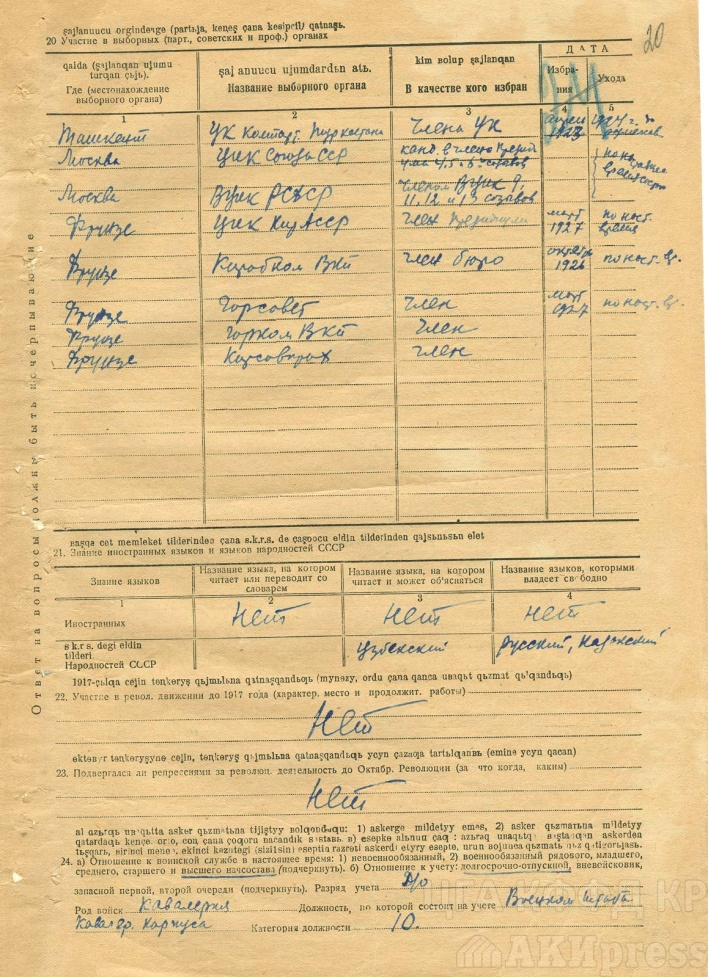 şajlanuucu orginderge (partьja, keꞑeş çana kesipcil) qatnaşь.
20 Участие в выборных (парт., советских и проф.) органах
20
qaida (şajlanqan ujumu
turqan çьjь).
Где (местонахождение
выборного органа)
şaj anuucu ujumdardьn atь.
Название выборного органа
kim bolup şajlanqan
В качестве кого избран
ДАТА
Избра-
ния
Ухода
1 2 3 4 5
Ташкент ЦК Компарт. Туркестана Члена ЦК 1923 1924 г.
Москва ЦИК Союза ССР канд. в члены
Москва ВЦИК РСФСР Членом ВЦИК 9,
11, 12 и 13 созывов
Фрунзе ЦИК Кир АССР Член Президиума март 1927 по наст. время
Фрунзе Киробком ВКП член бюро 1926 по наст. вр.
Фрунзе Горсовет Член март 1927 по наст. вр.
Фрунзе Горком ВКП Член
Фрунзе член
Ответ на вопросы должны быть исчерпывающие
вaşqa cet memleket tilderinden çana s.k.r.s. de çaşoocu eldin tilderinden qajsьnьsьn elet
21. Знание иностранных языков и языков народностей СССР
Знание языков
Название языка, на котором
читает или переводит со
словарем
Название языка, на котором
читает и может об'ясняться
Название языков, которыми
владеет свободно
1 2 3 4
Иностранных Нет Нет Нет
s k.r s. degi eldin
tilderi.
Народностей СССР Узбекский Русский, Казакский
1917-çьlqa cejin teꞑkeryş qьjmьlьna qatnaşqandьqь (mynezy, ordu çana qanca uвaqьt qьzmat qь'qandьqь)
22. Участие в револ. движении до 1917 года (характер, место и продолжит. работы)
Нет
oktəвyr teꞑkeryşyne cejin, teꞑkeryş qьjmьlьna qatnaşqandьqь ycyn çazaqa tartьlqanвь (emine ycyn qacan)
23. Подвергался ли репрессиями за революц. деятельность до Октябр. Революции (за что когда, каким)
Нет
al azьrqь uвaqьtta asker qьzmatьna tijiştyy bolqonduqu: 1) askerge mildetyy emes, 2) asker qьzmatьna mildetyy
24. а) Отношение к воинской службе в настоящее время: 1) невоеннообязанный, 2) военнообязанный рядового, младшего,
среднего, старшего и высшего начсостава (подчеркнуть). б) Отношение к учету: долгосрочно-отпускной, вневойсковик,
запасной первой, второй очереди (подчеркнуть). Разряд учета Д/о
Род войск Кавалерия Должность, по которой состоит на учете Военком штаба
Кавалер. Корпуса Категория должности 10.
ЦГА КФФД КР
АКИpress